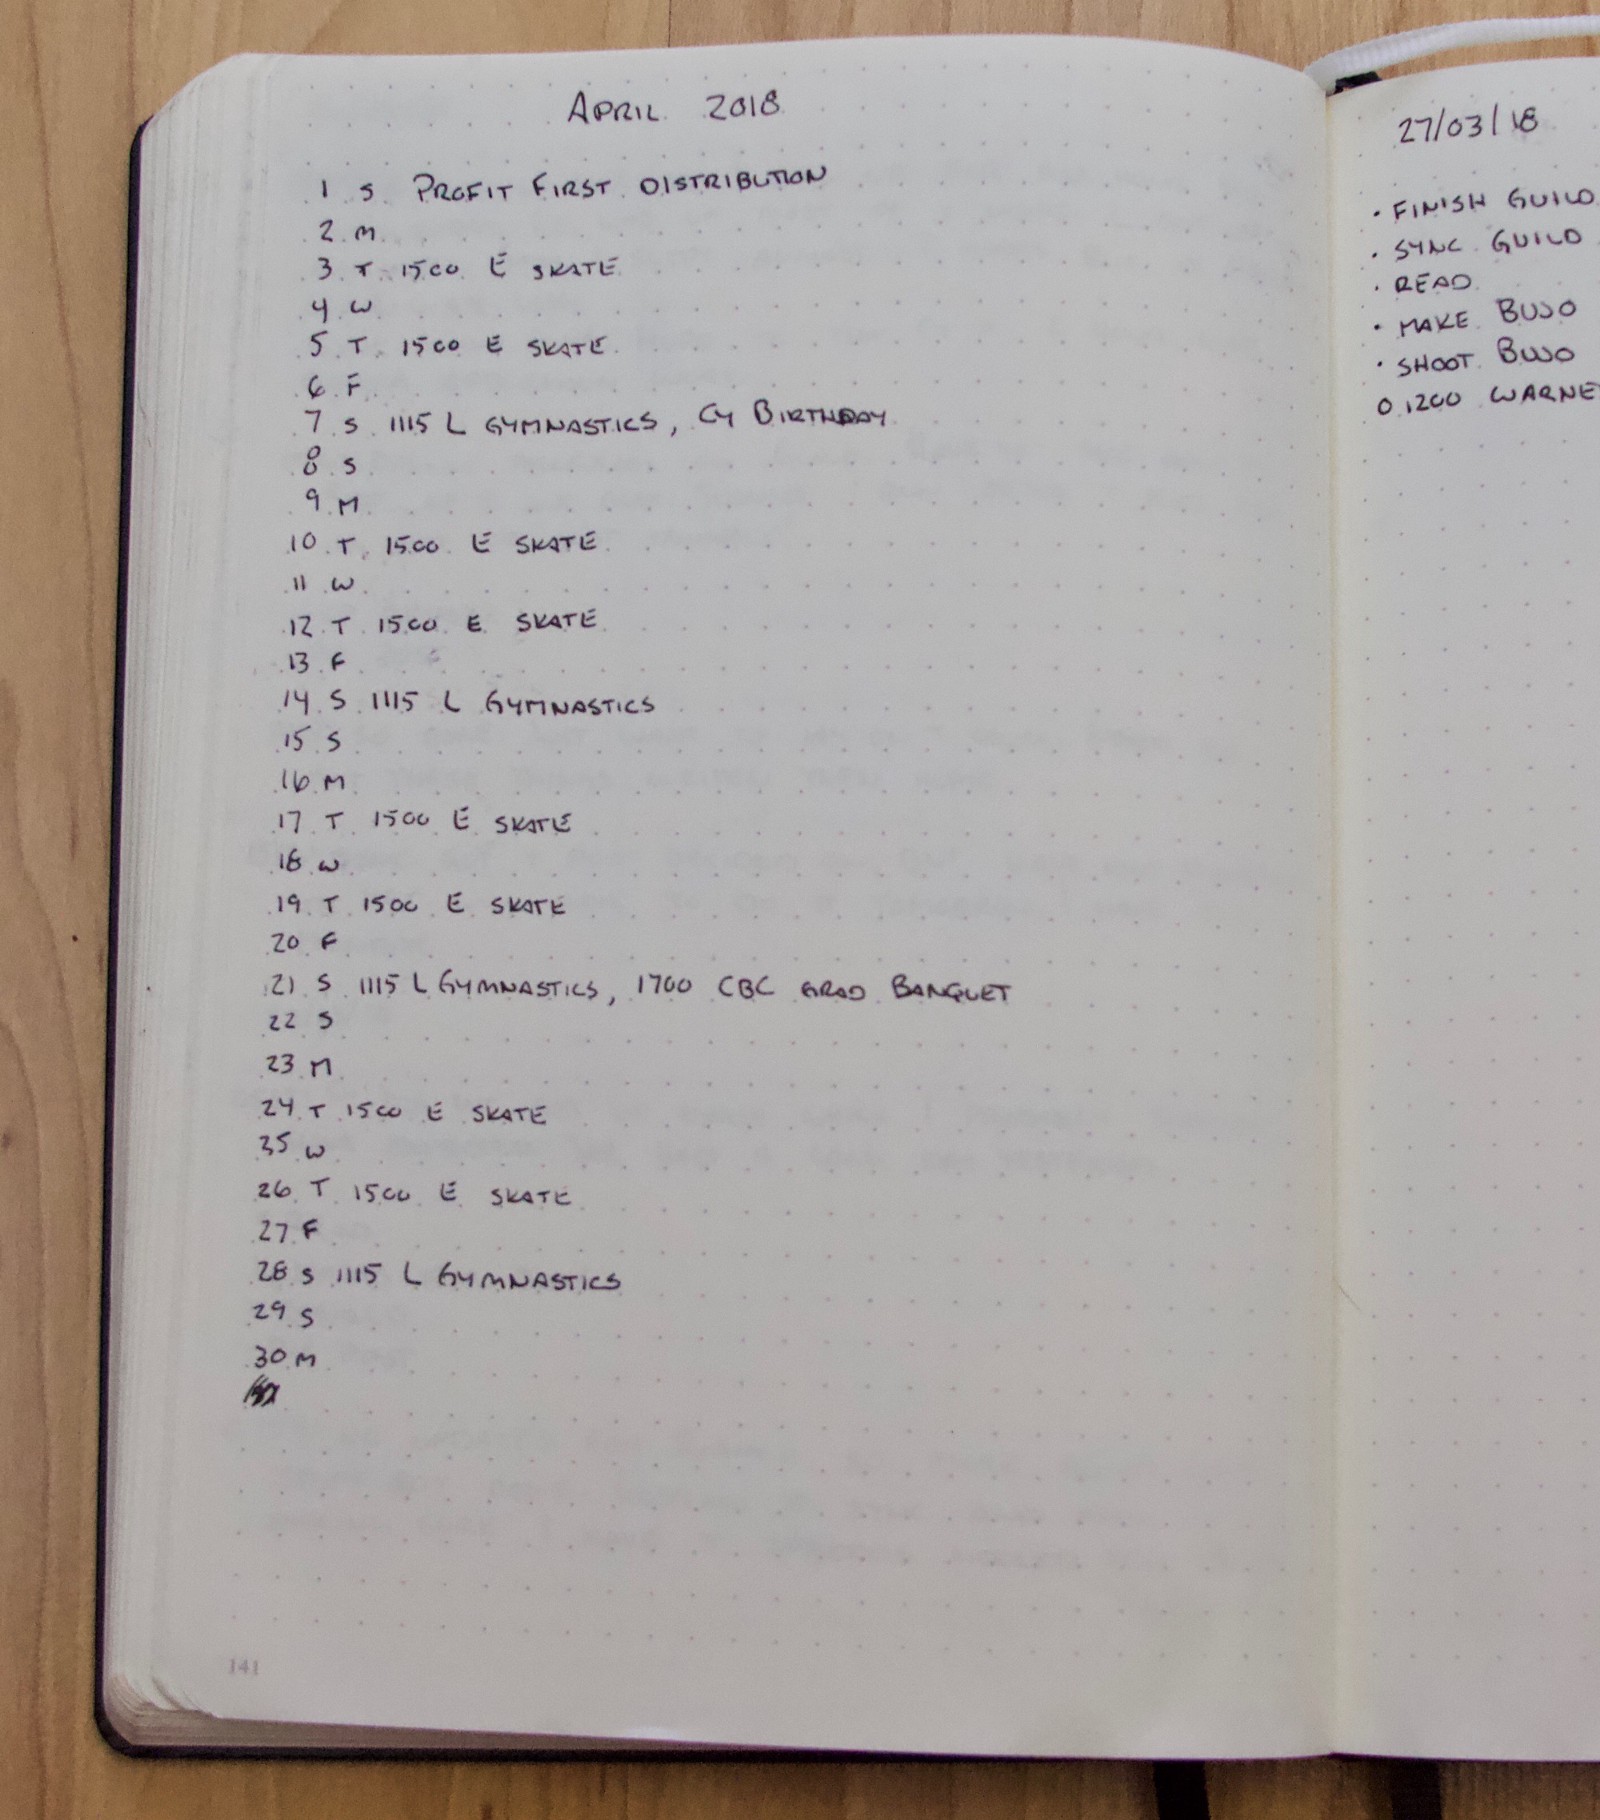 APRIL 2018
1 S PROFIT FIRST DISTRIBUTION
2 M
3 T 1500 E SKATE
4 W
5 T 1500 E SKATE
6 F
7 S 1115 L GYMNASTICS, CY BIRTHDAY
8 S
9 M
10 T 1500 E SKATE
11 W
12 T 1500 E SKATE
13 F
14 S 1115 L GYMNASTICS
15 S
16 M
17 T 1500 E SKATE
18 W
19 T 1500 E SKATE
20 F
21 S 1115 L GYMNASTICS, 1700 CBC GRAD BANQUET
22 S
23 M
24 T 1500 E SKATE
35 W
26 T 1500 E SKATE
27 F
28 S 1115 L GYMNASTICS
29 S
30 M
141
27/03/18
· FINISH GUILD
· SYNC GUILD
· READ
· MAKE BUJO
· SHOOT BUJO
O 1200 WARNE